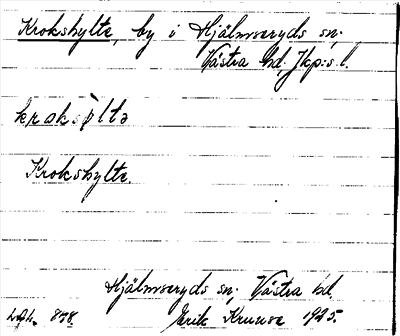 Krokshylte, by i Hjälmseryds sn.
Västra hd. Jkp:s l.
kroksìltə
Krokshylte.
Hjälmseryds sn, Västra hd.
Erik 1925.